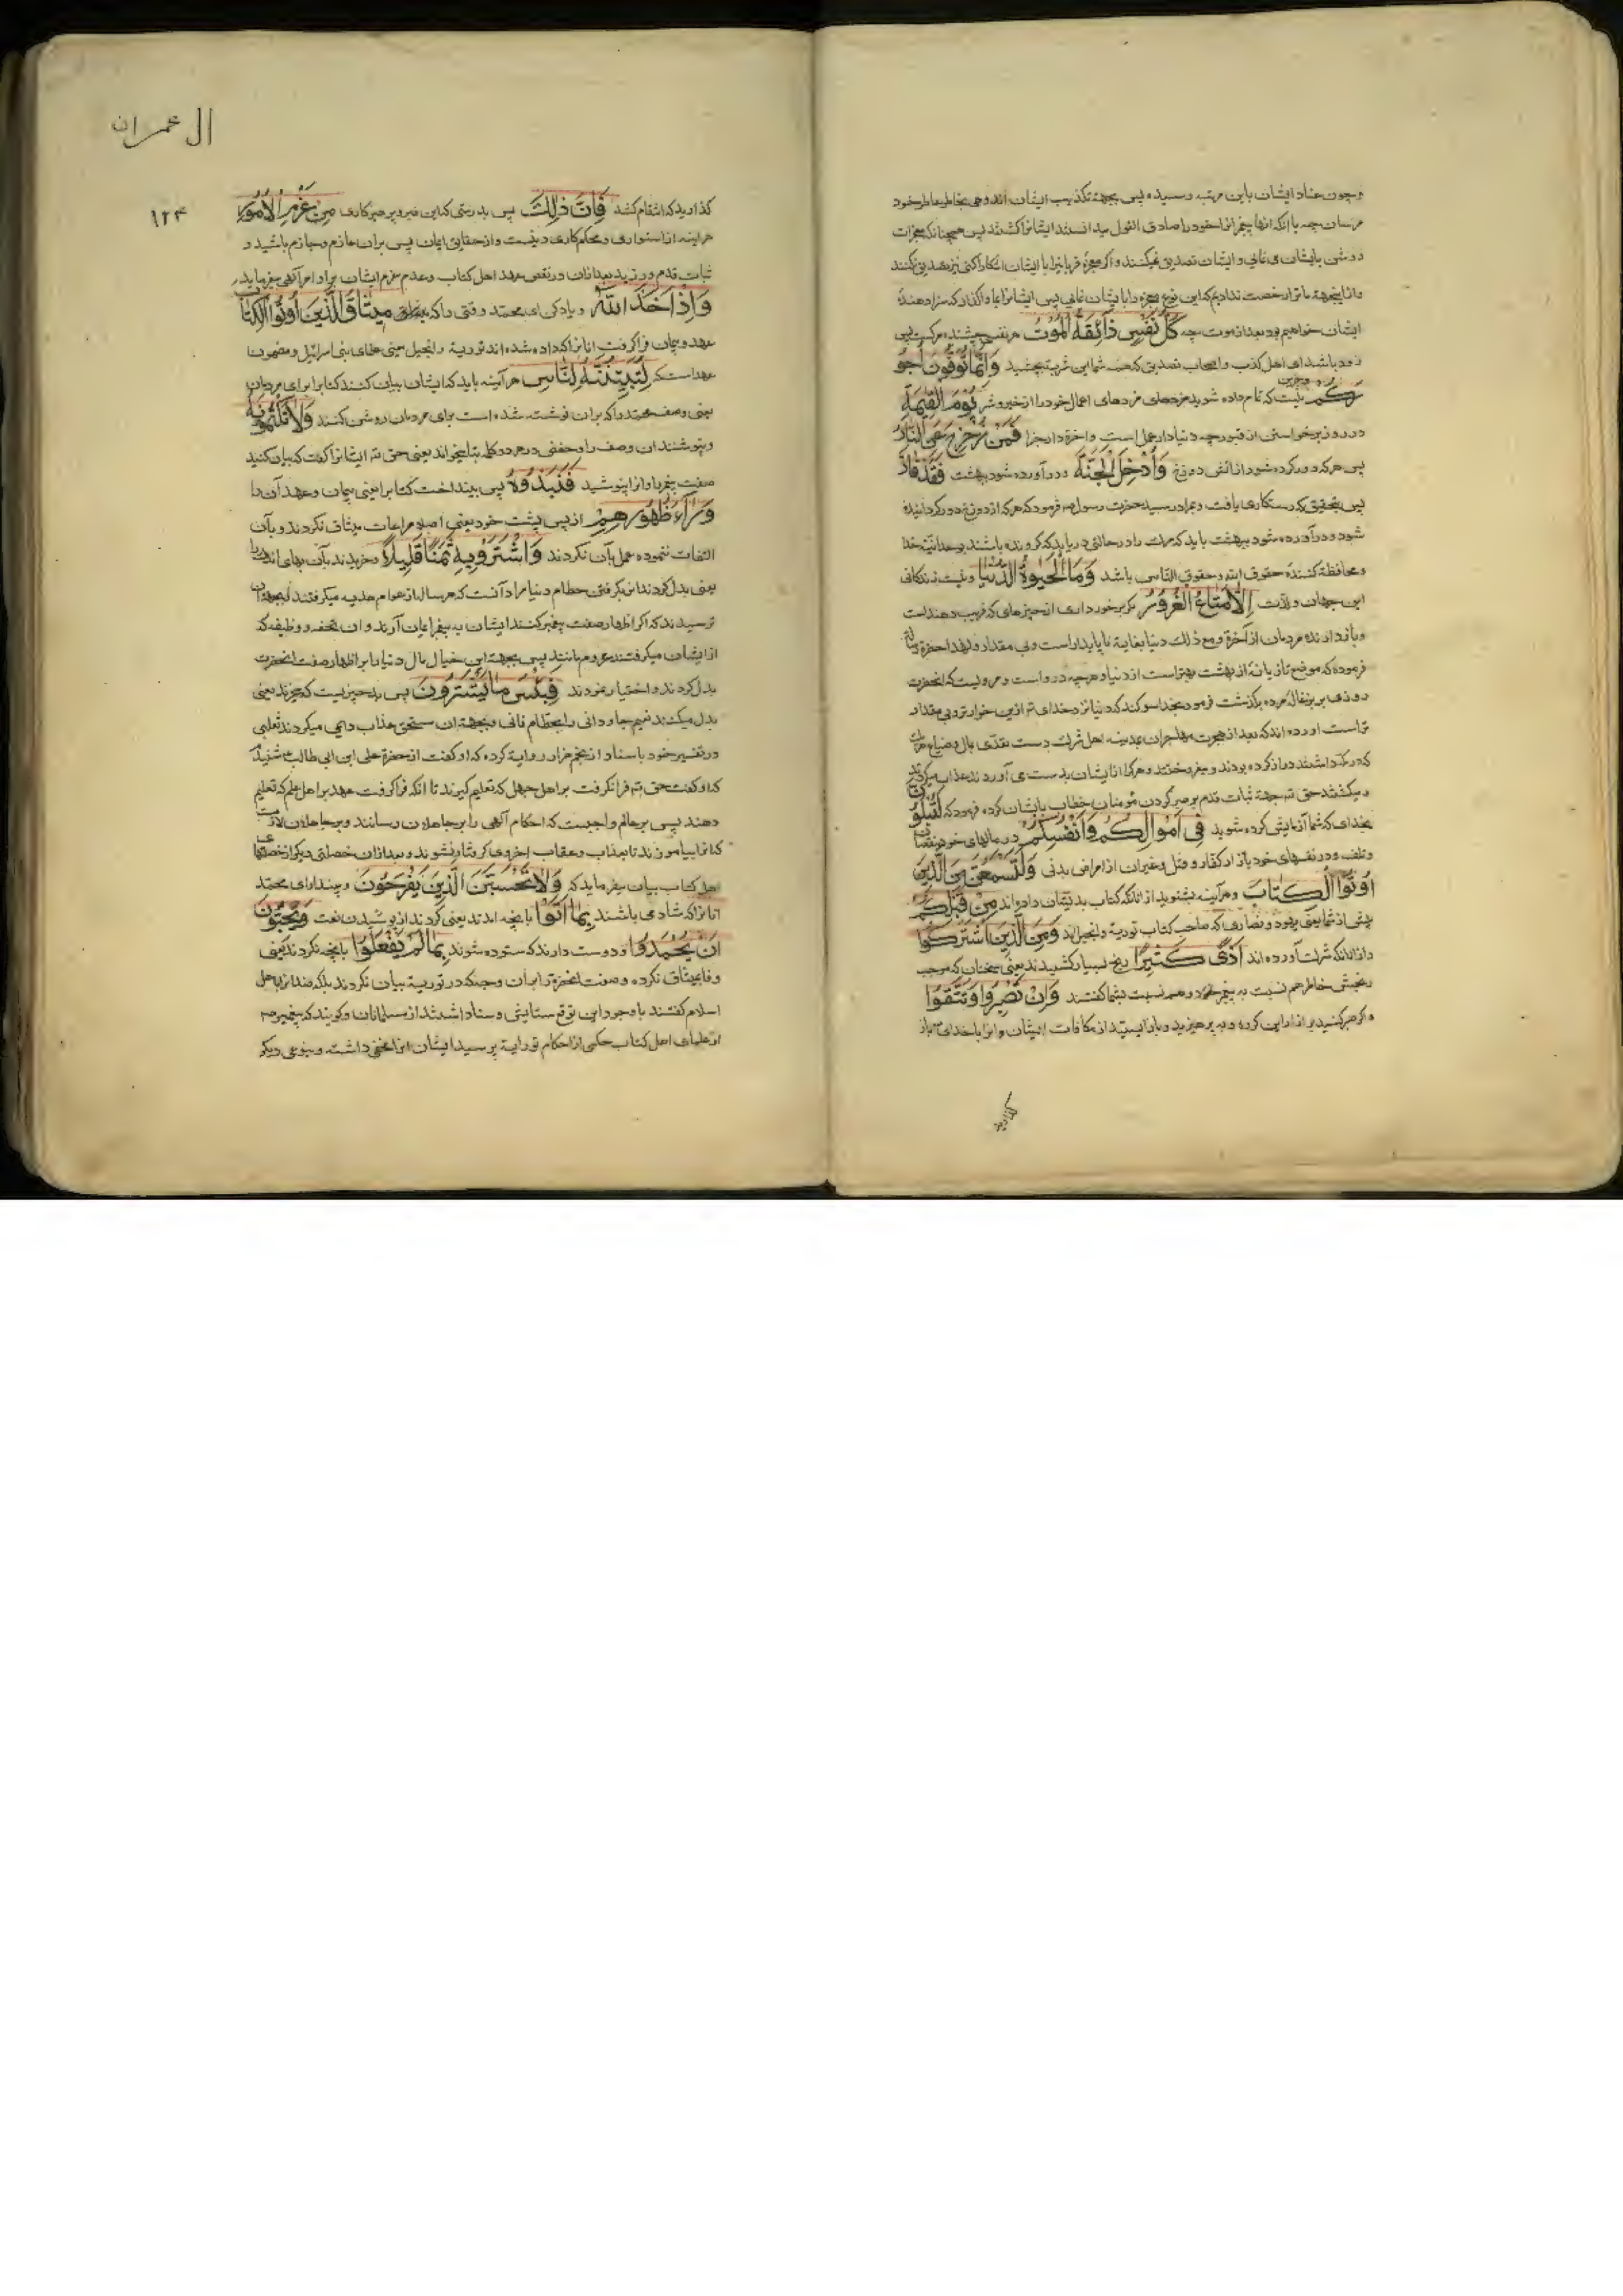 وچون عناد ایشان باین مرتبه رسیده پس بجهة تکذیب ایشان اندوهی بخاطر عاطر خود
مرسان چه با آنکه آنها پیغمبرانرا صادق القول میدانستند ایشانرا کشتند پس همچنانکه معجزات
روشن بایشان می نمایی و ایشان تصدیق نمیکنند و اگر معجزهٔ قربانرا با ایشان اشکارا کنی نیز تصدیق نکنند
و ازاینجهة ما ترا رخصت ندادیم که این نوع معجزه را بایشان نمایی پس ایشانرا بما واگذار که سزا دهندهٔ
ایشان خواهیم بود بعد از موت چه كُلُّ نَفْسٍ ذَائِقَةُ الْمَوْتِ هر نفسی چشنده مرکست پس
زود باشد ای اهل کذب و اصحاب تصدیق که همه شما این شربت بچشید وَاِنَّمَا تُوَفَّوْنَ اُجُو
رَكُمْ و جز این نیست که تمام داده شوید مزدهای عملهای خود را از خیر و شر يَوْمَ الْقِيٰمَةِ
در روز برخواستن از قبور چه دنیا دار عمل است و اخرة دار جزا فَمَنْ زُحْزِحَ عَنِ النَّارِ
پس هر که دور کرده شود از اتش دوزخ وَاُدْخِلَ الْجَنَّةَ و در آورده شود ببهشت فَقَدْ فَازَ
پس بتحقیق که رستکاری یافت و بمراد رسید حضرت رسول ص فرمود که هر که از دوزخ دور کردانیده
شود و در آورده شود ببهشت باید که مرک را در حالتی دریابد که کرونده باشند بوحدانیة خدا
و محافظة کنندهٔ حقوق الله و حقوق الناس باشد وَمَا الْحَيٰوةُ الدُّنْيَا و نیست زندکانی
این جهان و لذت اِلَّا مَتَاعُ الْغُرُوْرِ مکر برخورداری از چیزهای که فریب دهنداست
و بازدارنده مردمان از آخرة و مع ذلک دنیا بغایة ناپایدار است و بی مقدار و لهذا حضرة رسالة
فرموده که موضع تازیانهٔ از بهشت بهتراست از دنیا و هرچه در و است و مرویست که انحضرت
روزی بر بزغاله مرده بگذشت فرمود بخدا سوکند که دنیا نزد خدای تع ازین خوارتر و بی مقدار
تراست اورده اند که بعد از هجرت مهاجران بمدینه اهل شرک دست تعدی بمال و ضیاع
که در مکه داشتند دراز کرده بودند و میفروختند و هرکرا از ایشان بدست می آوردند عذاب میکردند
و میکشتند حق تع بجهة ثبات قدم بر صبر کردن مؤمنان خطاب بایشان کرده فرمود که لَتُبْلَوُنَّ
بخدای که شما آزمایش کرده شوید فِي اَمْوَالِكُمْ وَاَنْفُسِكُمْ در مالهای خود بنقصان
و تلف و در نفسهای خود باز از کفار و قتل و غیران از امراض بدنی وَلَتَسْمَعُنَّ مِنَ الَّذِيْنَ
اُوْتُوا الْكِتَابَ و هرآینه بشنوید از انانکه کتاب بدیشان داده اند مِنْ قَبْلِكُمْ
پیش از شما یعنی یهود و نصاری که صاحب کتاب توریة و انجیل اند وَمِنَ الَّذِيْنَ اَشْرَكُوْا
و از انانکه شرک آورده اند اَذًى كَثِيْرًا رنج بسیار کشیدند یعنی سخنان که موجب
رنجش خاطر هم نسبت به پیغمبر خود و هم نسبت بشما کفتند وَاِنْ تَصْبِرُوْا وَتَتَّقُوْا
و کر صبر کنید بر ازار این کروه و بپرهیزید و باز ایستید از مکافات ایشان و انرا با خدای تع باز
کذارید
ال عمران
۱۲۴
کذارید که انتقام کشد فَاِنَّ ذٰلِكَ پس بدرستی که این صبر و پرهیزکاری مِنْ عَزْمِ الْاُمُوْرِ
هراینه از استواری و محکم کاری دینست و از حقایق ایمان پس بران عازم و جازم باشید و
ثبات قدم ورزید بعد ازان در نقض عهد اهل کتاب و عدم عزم ایشان بر اوامر آلهی میفرماید
وَاِذْ اَخَذَ اللهُ و یاد کن ای محمد وقتی را که خدای مِيْثَاقَ الَّذِيْنَ اُوْتُوا الْكِتَابَ
عهد و پیمان فراکرفت انانرا که داده شده اند توریة و انجیل یعنی علمای بنی اسرائیل و مضمون
عهد است که لَتُبَيِّنُنَّهُ لِلنَّاسِ هر آینه باید که ایشان بیان کنند کتابرا برای مردمان
یعنی وصف محمد را که بران نوشته شده است برای مردمان روشن کنند وَلَا تَكْتُمُوْنَهُ
و نپوشند ان وصف را و حفص در هر دو کلمه بتا میخواند یعنی حق تع ایشانرا کفت که بیان کنید
صفت پیغمبر را و ازا نپوشید فَنَبَذُوْهُ پس بینداخت کتابرا یعنی پیمان و عهد آن را
وَرَاءَ ظُهُوْرِهِمْ از پس پشت خود یعنی اصلا مراعات میثاق نکردند و بآن
التفات ننموده عمل بآن نکردند وَاشْتَرَوْا بِهِ ثَمَنًا قَلِيْلًا و خریدند بآن بهای اندک را
یعنی بدل کردند انرا بکرفتن حطام دنیا مراد آنست که هر سال از عوام هدیه میکرفتند
ترسیدند که اکر اظهار صفت پیغمبر کنند ایشان به پیغمبر ایمان آرند و ان تحفه و وظیفه که
از ایشان میکرفتند محروم مانند پس بجهة این خیال مال دنیا را بر اظهار صفت انحضرت
بدل کردند و اختیار نمودند فَبِئْسَ مَا يَشْتَرُوْنَ پس بد چیزیست که میخرند یعنی
بدل میکنند نعیم جاودانی را بحطام فانی و بجهة ان مستحق عذاب دایمی میکردند ثعلبی
در تفسیر خود باسناد از روایة کرده که او کفت از حضرة علی ابن ابی طالب شنیدم
که او کفت حق تع فرا نکرفت بر اهل جهل که تعلیم کیرند تا انکه فراکرفت عهد بر اهل علم که تعلیم
دهند پس بر عالم واجبست که احکام آلهی را بر جاهلان رسانند و بر جاهلان لازمست
که انرا بیاموزند تا بعذاب و عقاب اخروی کرفتار نشوند و بعد ازان خصلتی دیکر از خصلتهای
اهل کتاب بیان میفرماید که وَلَا تَحْسَبَنَّ الَّذِيْنَ يَفْرَحُوْنَ و مپندار ای محمد
انانرا که شاد می باشند بِمَا اَتَوْا بانچه امدند یعنی کردند از پوشیدن نعت وَيُحِبُّوْنَ
اَنْ يُحْمَدُوْا و دوست دارند که ستوده شوند بِمَا لَمْ يَفْعَلُوْا بانچه نکردند یعنی
وفا بمیثاق نکرده و صفت انحضرة را بران وجه که در توریة بیان نکردند بلکه ضد انرا باهل
اسلام کفتند با وجود این توقع ستایش و ستاد اشتند از مسلمانان و کویند که پیغمبر ص
از علمای اهل کتاب حکمی از احکام توراية پرسید ایشان انرا مخفی داشته و بنوعی دیکر